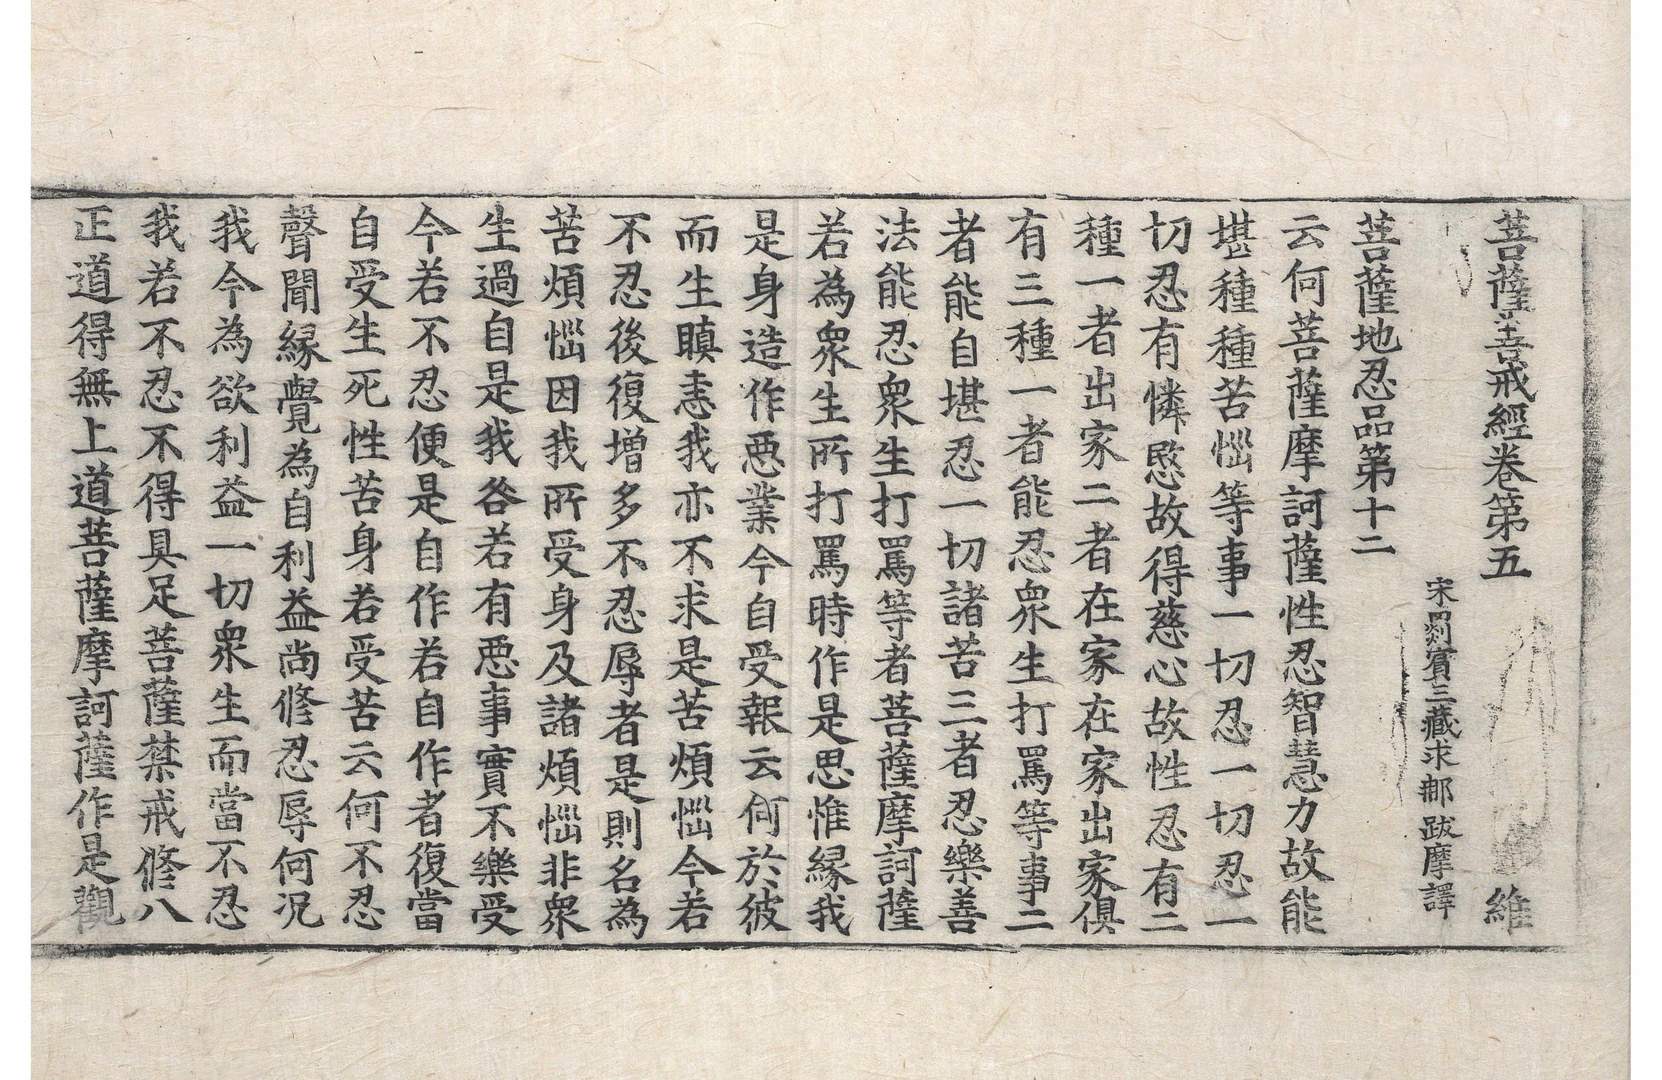 菩薩善戒經卷第五 維
宋罽賓三藏求那跋摩譯
菩薩地忍品第十二
云何菩薩摩訶薩性忍智慧力故能
堪種種苦惱等事一切忍一切忍一
切忍有憐愍故得慈心故性忍有二
種一者出家二者在家在家出家俱
有三種一者能忍衆生打罵等事二
者能自堪忍一切諸苦三者忍樂善
法能忍衆生打罵等者菩薩摩訶薩
若為衆生所打罵時作是思惟縁我
是身造作惡業今自受報云何於彼
而生瞋恚我亦不求是苦煩惱今若
不忍後復增多不忍辱者是則名為
苦煩惱因我所受身及諸煩惱非衆
生過自是我咎若有惡事實不樂受
今若不忍便是自作若自作者復當
自受生死性苦身若受苦云何不忍
聲聞縁覺為自利益尚修忍辱何況
我今為欲利益一切衆生而當不忍
我若不忍不得具足菩薩禁戒修八
正道得無上道菩薩摩訶薩作是觀